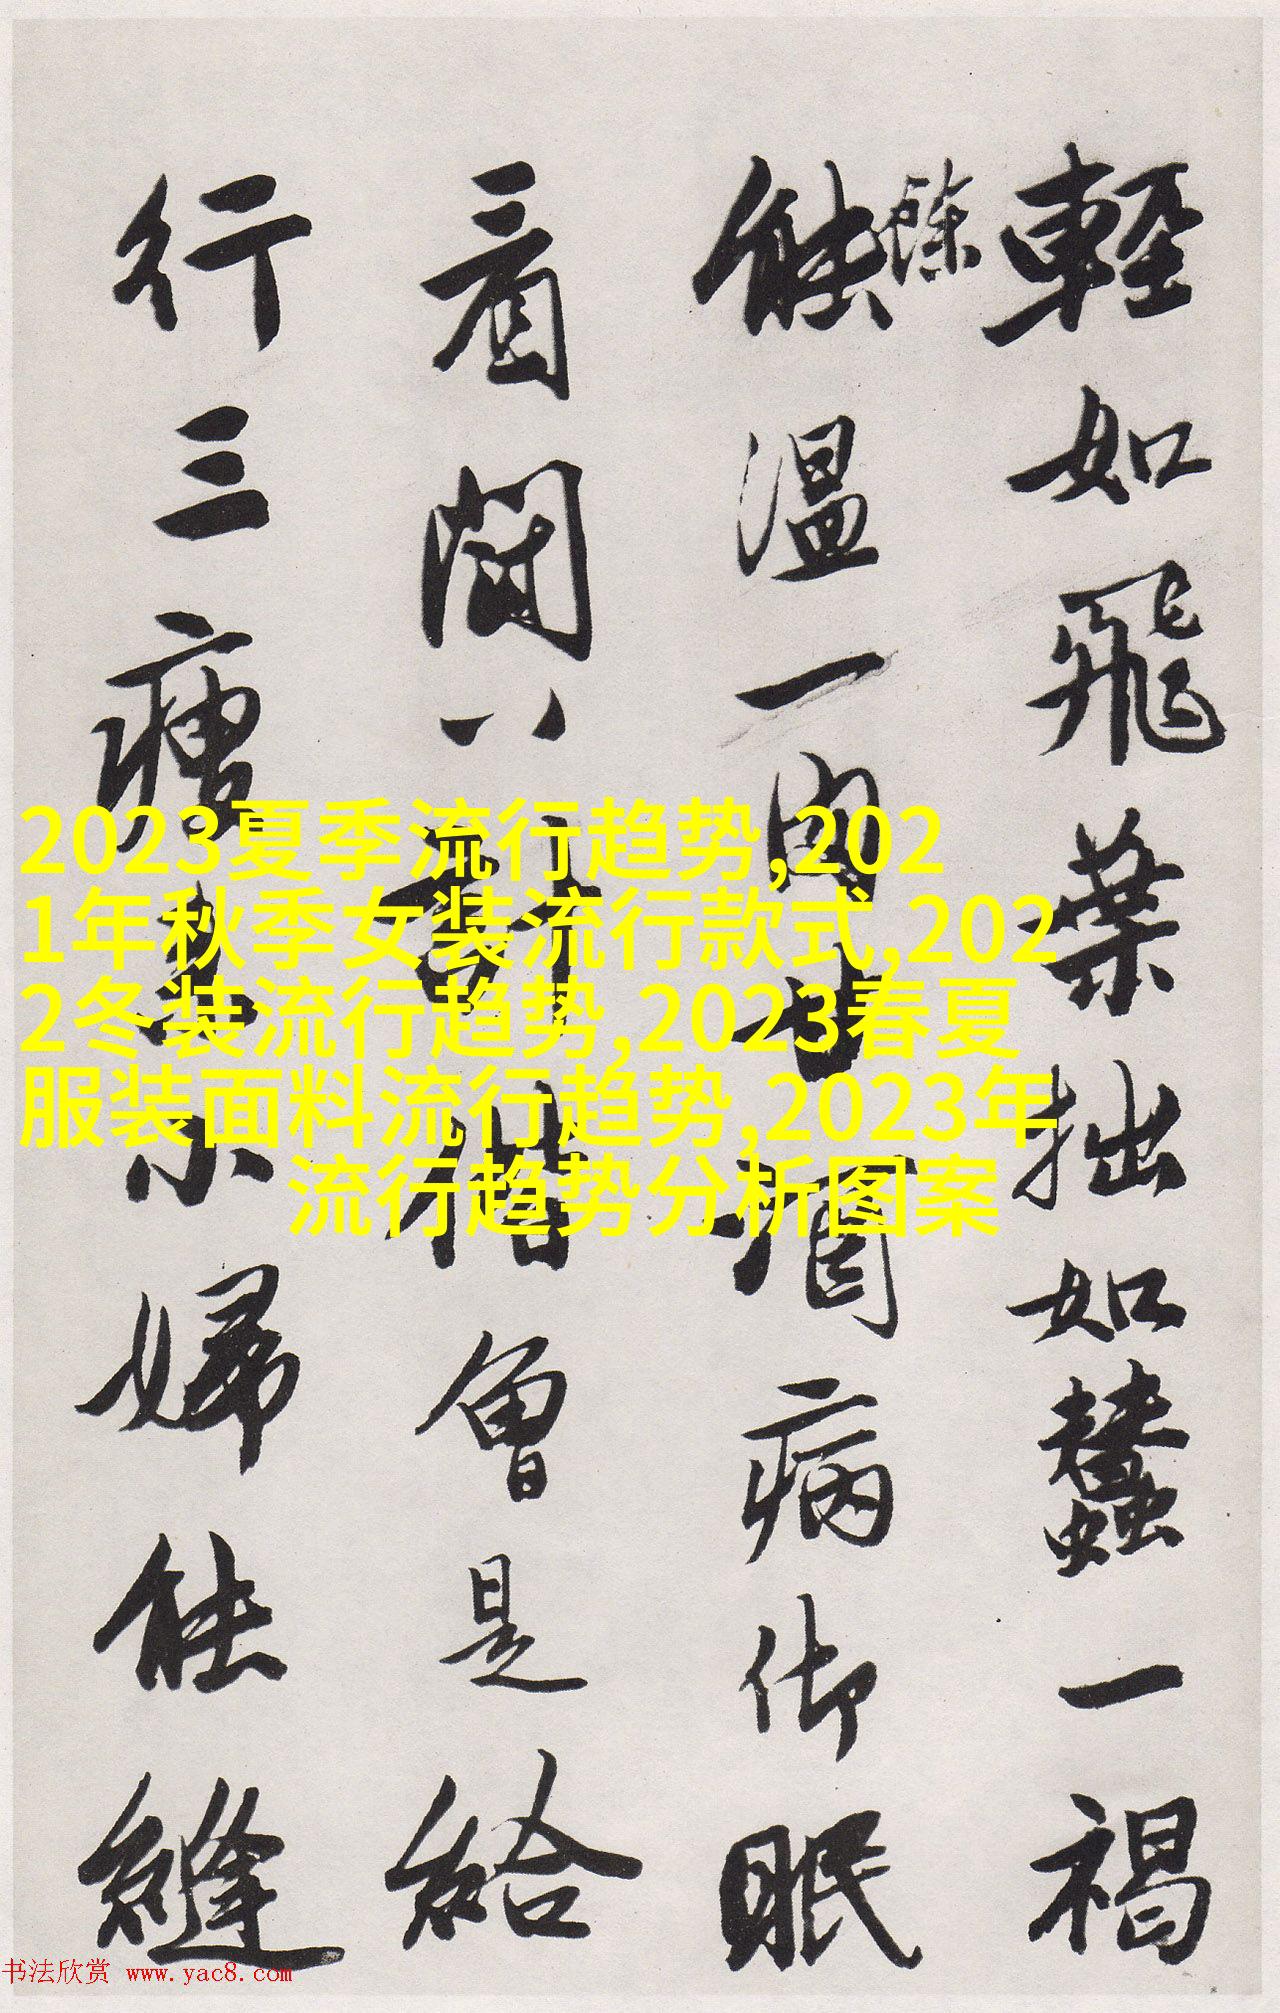 輕如飛葉拙如蠶一褐
餘
能溫一肉甘酒病御眠
看關八計借曾是給
行三瘦妻小婦能縫
2023夏季流行趋势,202
1年秋季女装流行款式,202
2冬装流行趋势,2023春夏
服装面料流行趋势,2023年
流行趋势分析图案
书法欣赏 www.yac8.com